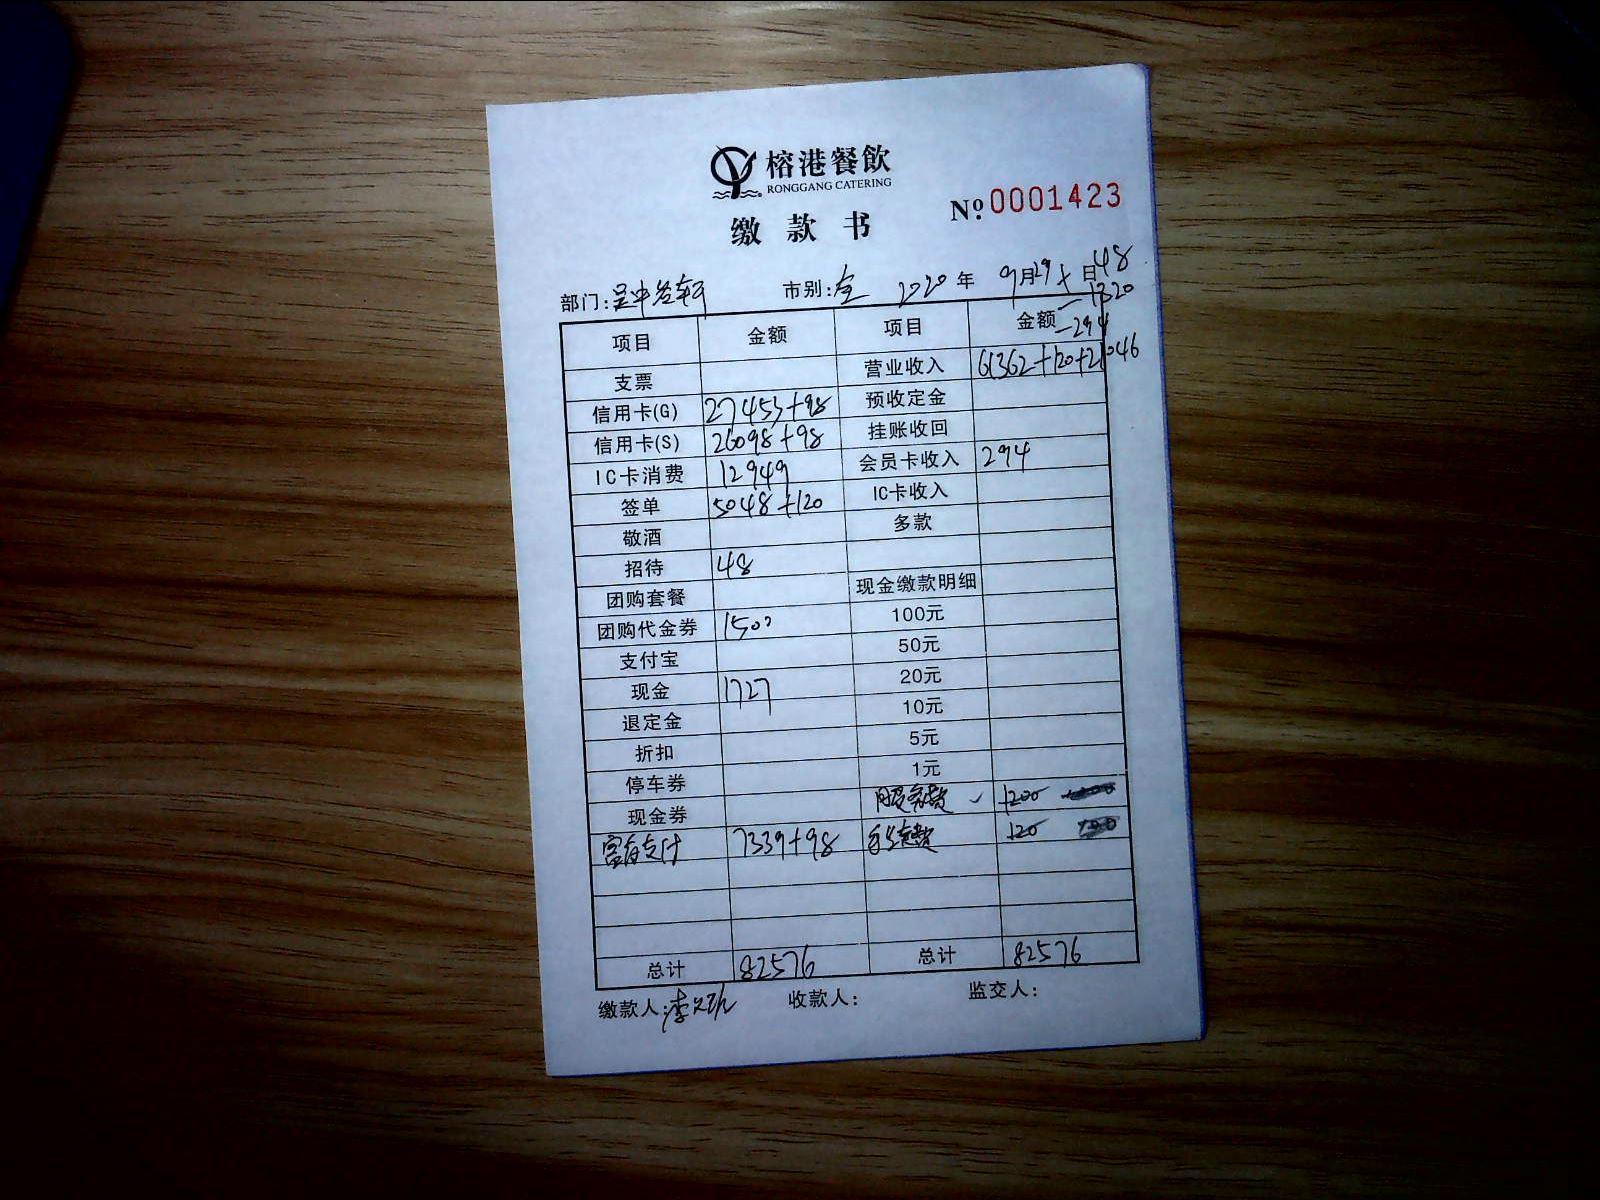 榕港餐飲
RONGGANG CATERING
缴款书
№ 0001423
部门: 吴中 市别: 全 2020 年 9 月 29 日 +48
-1320
-294
项目 金额 项目 金额
支票 营业收入 61362+120+21046
信用卡(G) 27453+98 预收定金
信用卡(S) 26098+98 挂账收回
IC卡消费 12949 会员卡收入 294
签单 5048+120 IC卡收入
敬酒 多款
招待 48
团购套餐 现金缴款明细
团购代金券 1500 100元
支付宝 50元
现金 1727 20元
退定金 10元
折扣 5元
停车券 1元
现金券 服务费 1200
富友支付 7339+98 120
总计 82576 总计 82576
缴款人: 李 收款人: 监交人: